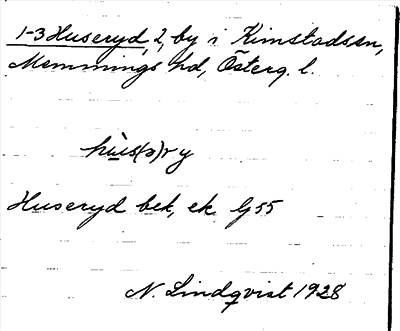 1-3 Huseryd, 2, by i Kimstads sn,
Memmings hd, Österg. l.
hùs(ə)ry
Huseryd bek, ek G 55
N. Lindqvist 1928